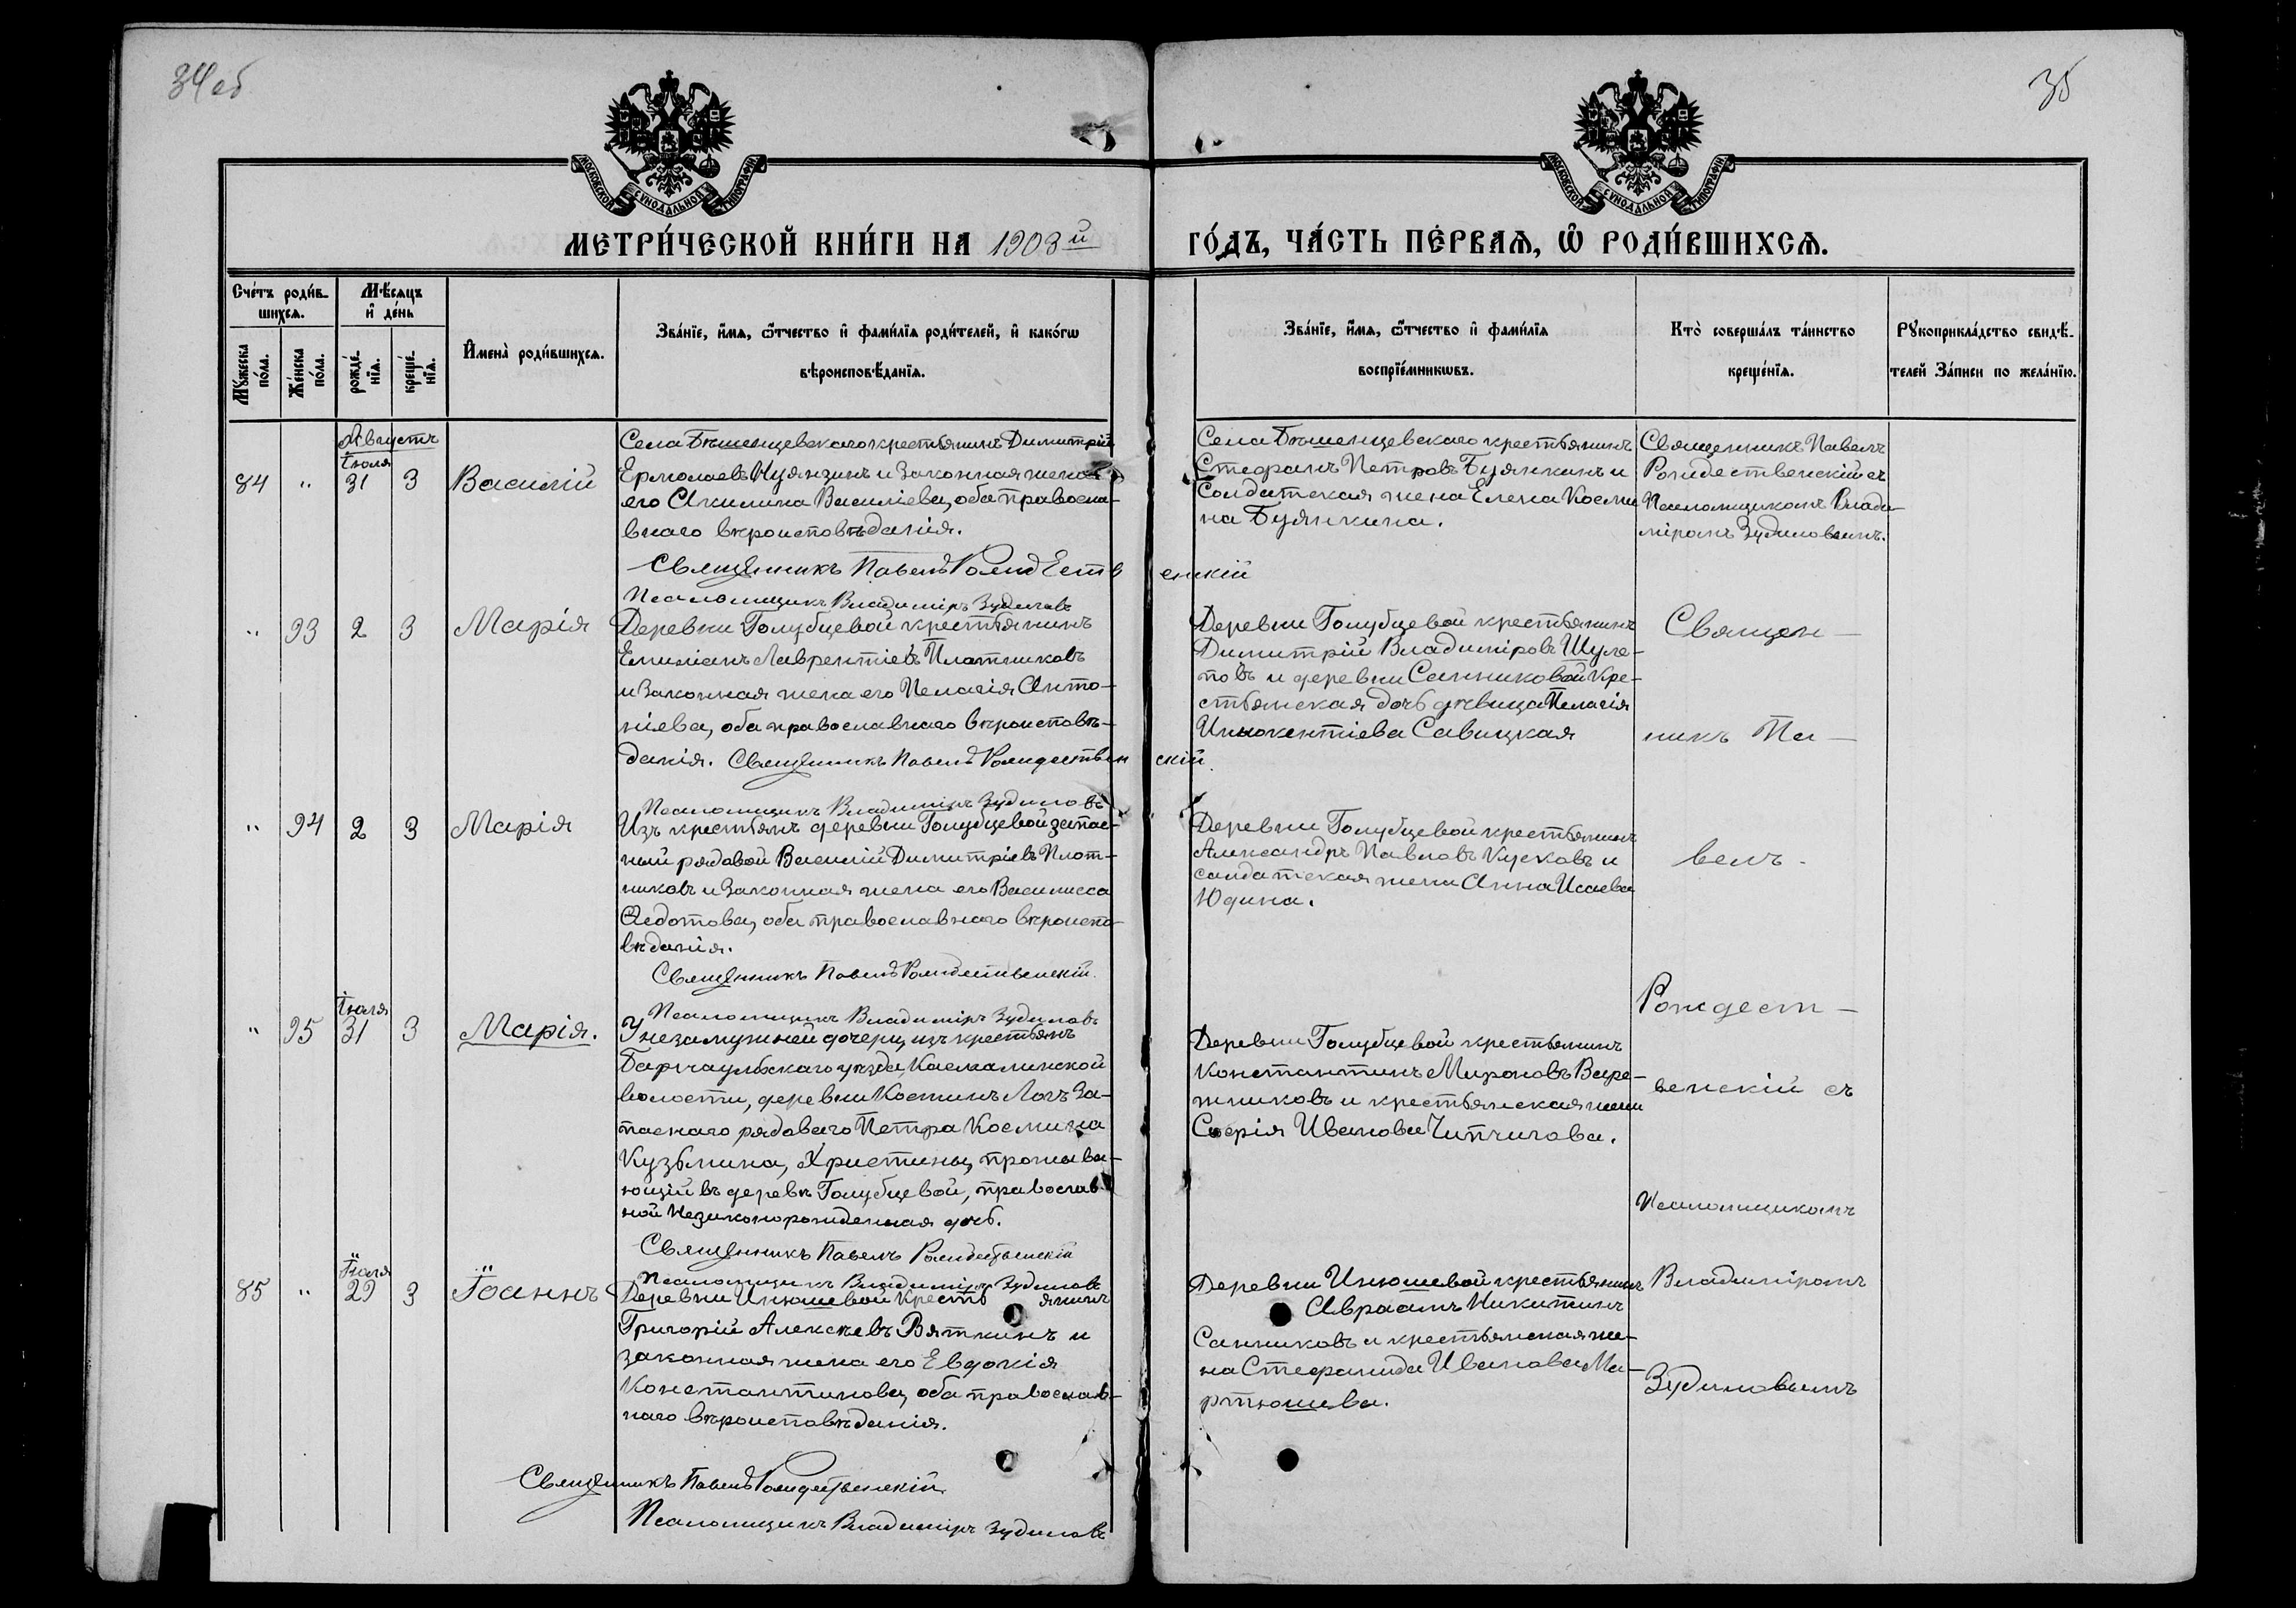 34 об
35
МОСКОВСКОЙ СѴНОДАЛЬНОЙ ТИПОГРАФІИ
МОСКОВСКОЙ СѴНОДАЛЬНОЙ ТИПОГРАФІИ
МЕТРИ́ЧЕСКОЙ КНИ́ГИ НА 1903 й
ГО́ДЪ, ЧА́СТЬ ПЕ́РВАѦ, Ѽ РОДИ́ВШИХСѦ.
Сче́тъ роди́в-
шихсѧ.
Мѣ́сѧцъ
и҆ де́нь
Мꙋ́жеска по́ла.
Же́нска по́ла.
рожде́-
нїѧ.
креще́-
нїѧ.
И҆мена̀ роди́вшихсѧ.
Зва́нїе, и҆́мѧ, ѻ҆́тчество и҆ фами́лїѧ роди́телей, и҆ како́гѡ
вѣроисповѣ́данїѧ.
Зва́нїе, и҆́мѧ, ѻ҆́тчество и҆ фами́лїѧ
воспрїе́мникѡвъ.
Кто̀ соверша́лъ та́инство
креще́нїѧ.
Рꙋкоприкла́дство свидѣ́-
телей за́писи по жела́нїю.
Августъ
Іюля
84 " 31 3 Василій
Села Бѣшенцевскаго крестьянинъ Димитрій
Ермолаевъ Нуянзинъ и законная жена
его Акилина Василіева, оба правосла-
внаго вѣроисповѣданія.
Священникъ Павелъ Рождественскій
Псаломщикъ Владиміръ Зудиловъ
Села Бѣшенцевскаго крестьянинъ
Стефанъ Петровъ Буянкинъ и
солдатская жена Елена Косми
на Буянкина.
Священникъ Павелъ
Рождественскій съ
Псаломщикомъ Влади-
міромъ Зудиловымъ.
" 93 2 3 Марія
Деревни Голубцевой крестьянинъ
Емиліанъ Лаврентіевъ Плотниковъ
и законная жена его Пелагія Анто-
ніева, оба православнаго вѣроисповѣ-
данія. Священникъ Павелъ Рождественскій
Псаломщикъ Владиміръ Зудиловъ
Деревни Голубцевой крестьянинъ
Димитрій Владиміровъ Шуле-
повъ и деревни Санниковой кре-
стьянская дочь дѣвица Пелагія
Иннокентіева Савицкая
Священ-
никъ Па-
" 94 2 3 Марія
Изъ крестьянъ деревни Голубцевой запас-
ный рядовой Василій Димитріевъ Плот-
никовъ и законная жена его Василисса
Ѳедотова, оба православнаго вѣроиспо-
вѣданія.
Священникъ Павелъ Рождественскій.
Псаломщикъ Владиміръ Зудиловъ
Деревни Голубцевой крестьянинъ
Александръ Павловъ Кусковъ и
солдатская жена Анна Исаева
Юдина.
велъ
Рождест-
Іюля
" 95 31 3 Марія.
У незамужней дочери, изъ крестьянъ
Барнаульскаго уѣзда, Касмалинской
волости, деревни Костинъ Логъ за-
паснаго рядоваго Петра Космина
Кузьмина, Христины, прожива-
ющій въ деревѣ Голубцевой, православ-
ной незаконорожденная дочь.
Священникъ Павелъ Рождественскій
Псаломщикъ Владиміръ Зудиловъ
Деревни Голубцевой крестьянинъ
Константинъ Мироновъ Варе-
жниковъ и крестьянская жена
Софія Иванова Чипчигова.
венскій съ
Псаломщикомъ
Іюля
85 " 29 3 Іоаннъ
Деревни Инюшевой крестьянинъ
Григорій Алексѣевъ Вяткинъ и
законная жена его Евдокія
Константинова, оба православ-
наго вѣроисповѣданія.
Священникъ Павелъ Рождественскій
Псаломщикъ Владиміръ Зудиловъ
Деревни Инюшевой крестьянинъ
Авраамъ Никитинъ
Санниковъ и крестьянская же-
на Стефанида Иванова Ма-
ртюшева.
Владиміромъ
Зудиловымъ